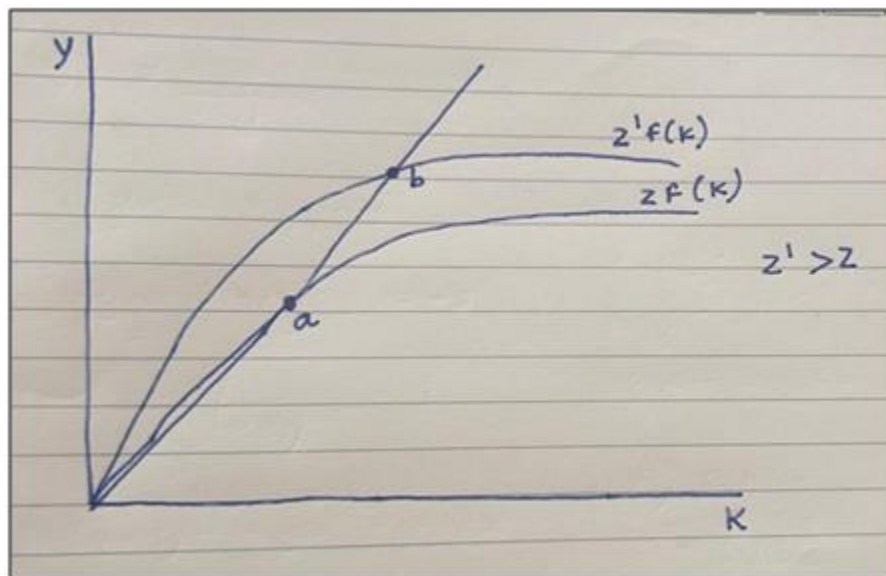 y
z'f(k)
b
zf(k)
z' > z
a
k